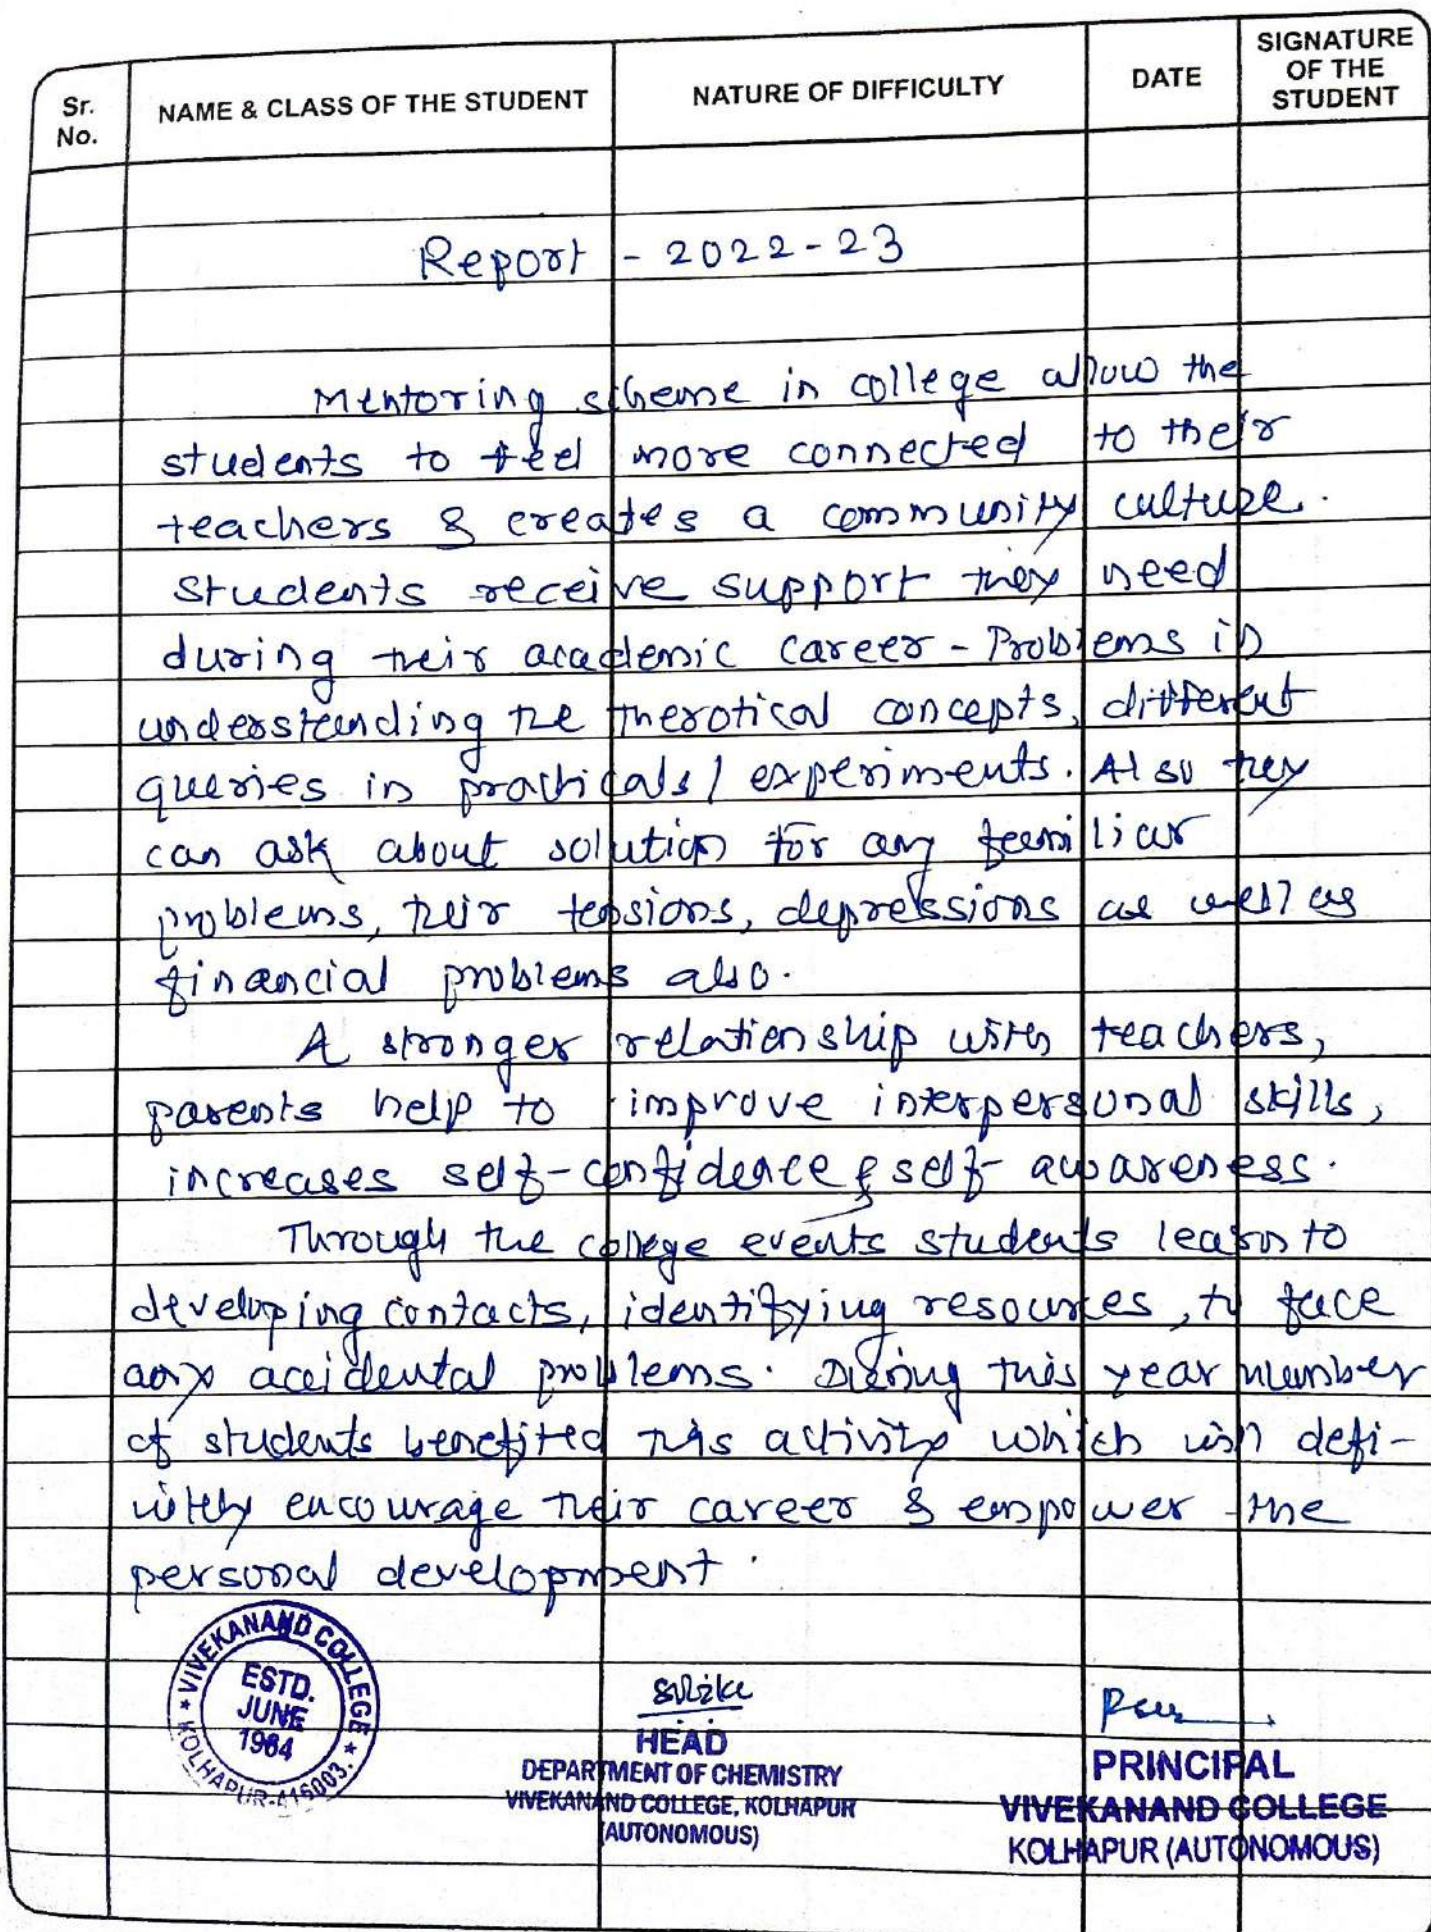 Sr. No.
NAME & CLASS OF THE STUDENT
NATURE OF DIFFICULTY
DATE
SIGNATURE OF THE STUDENT
Report - 2022-23
Mentoring scheme in college allow the
students to feel more connected to their
teachers & creates a community culture.
Students receive support they need
during their academic career - Problems in
understanding the therotical concepts, different
queries in practicals / experiments. Also they
can ask about solution for any familiar
problems, their tensions, depressions as well as
financial problems also.
A stronger relationship with teachers,
parents help to improve interpersonal skills,
increases self-confidence & self-awareness.
Through the college events students learn to
developing contacts, identifying resources, to face
any accidental problems. During this year number
of students benefited this activity which will defi-
nitely encourage their career & empower the
personal development.
VIVEKANAND COLLEGE
KOLHAPUR-416003.
ESTD.
JUNE
1964
HEAD
DEPARTMENT OF CHEMISTRY
VIVEKANAND COLLEGE, KOLHAPUR
(AUTONOMOUS)
PRINCIPAL
VIVEKANAND COLLEGE
KOLHAPUR (AUTONOMOUS)